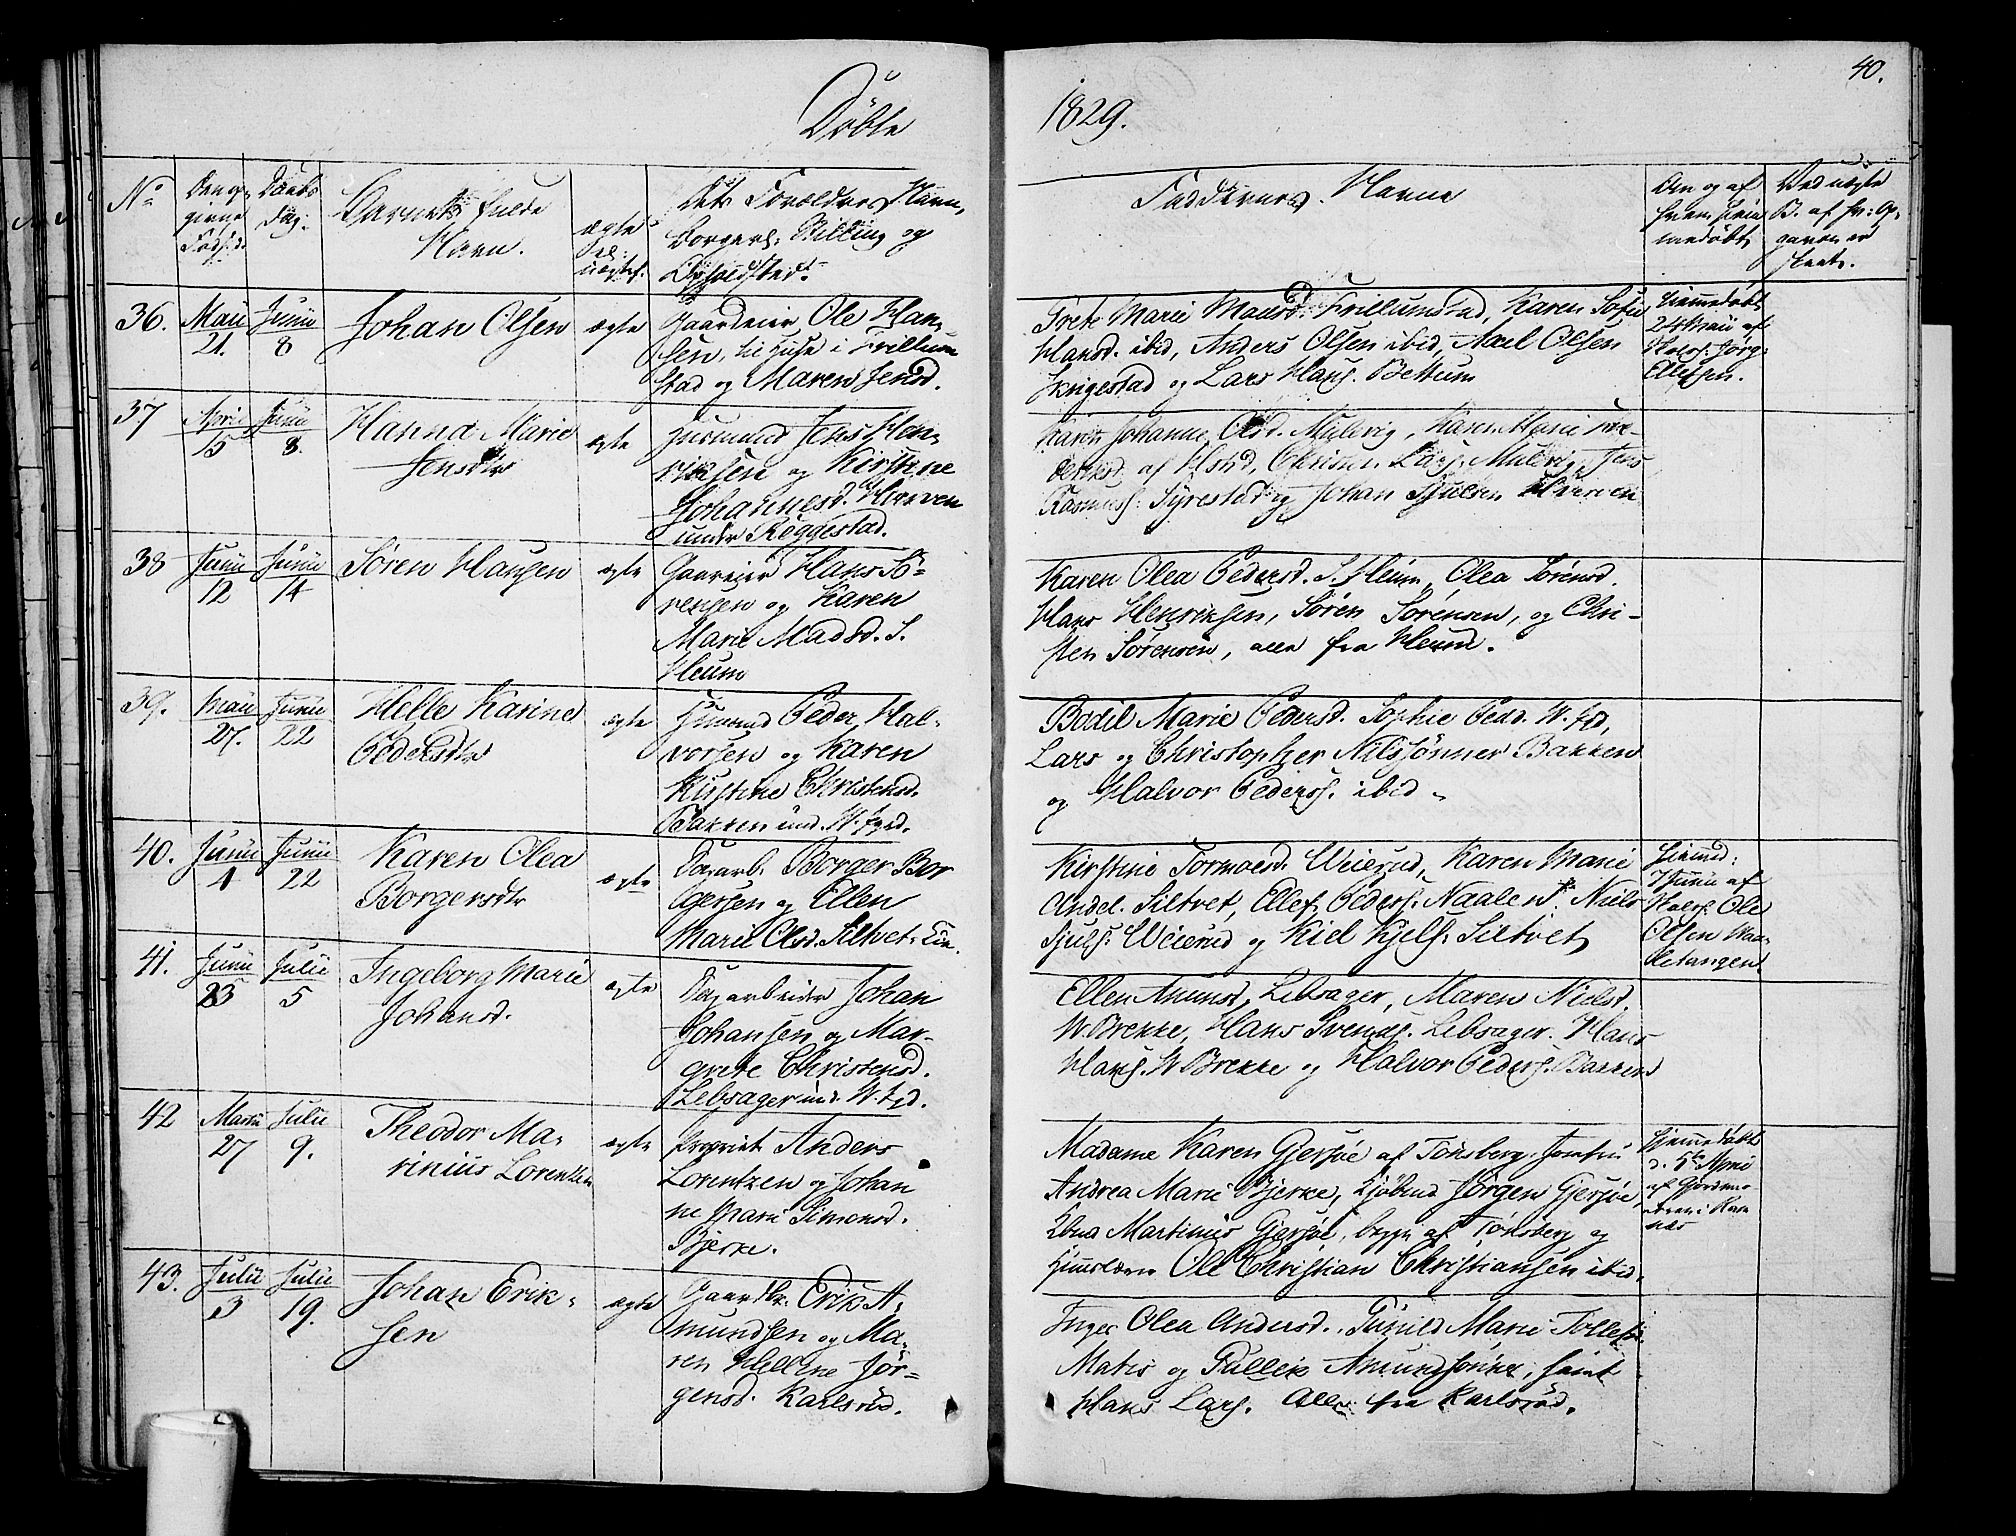 Döbte
1829.
40.
No
Den op-
givne
Föds:d.
Daabs
Dag.
Barnets fulde
Navn.
ægte
el.
uægte.
Dets Forældres Navn,
Borgerl: Stilling og
Opholdsted.
Faddernes Navne
Om og af
hvem hjem-
medöbt
Ved uægte
B. af hv: Op-
gaven er
skeet.
36.
Maii
21.
Junii
8
Johan Olsen
ægte
Gaardeier Ole Han-
sen, til huse i Trillum-
stad og Maren Jensd.
Marie Madsd. Trillumstad, Karen Sofie
Hansd. ibid, Anders Olsen ibid, Axel Olsen
og Lars Hans. Bettum
Hiemmedöbt
24 Maii af
Jörg.
Ellefsen.
37
April
15
Junii
8.
Hanna Marie
Jensdtr
ægte
Husmand Jens Hen-
riksen og Kirstine
Johannesd. Hverven
under Röggestad.
Karen Johanne Olsd. Mulvig, Karen Marie
af Christen Lars. Mulvig, Jens
Rasmus. Tyrestad og Johan Hverven
38
Junii
12
Junii
14
Sören Hansen
ægte
Gaardeier Hans Sö-
rensen og Karen
Marie Madsd. S.
Heum
Karen Olea Pedersd. S. Heum, Olea Sörensd.
Hans Henriksen, Sören Sörensen, og Chri-
sten Sörensen, alle fra Heum.
39.
Maii
27.
Junii
22
Helle Karine
Pedersdtr
ægte
Husmand Peder Hal-
vorsen og Karen
Kirstine Christensd.
Bakken und. W. Fyed.
Bodil Marie Pedersd. Sophie Pedd. W. Fyd,
Lars og Christopher Nilssönner Bakken
og Halvor Peders. ibid
40.
Junii
1
Junii
22
Karen Olea
Borgersdtr
ægte
Dagarb. Borger Bor
gersen og Ellen
Marie Olsd. Siltvet
Kirstine Tormoesd. Weierud, Karen Marie
Andd. Siltvet, Ellef Peders. Naalen. Niels
Sjuls. Weierud og Kiel Kjels. Siltvet
Hiemmed:
7 Junii af
Ole
Olsen Naa-
letangen
41.
Junii
23
Julii
5
Ingeborg Marie
Johansd.
ægte
Dagarbeider Johan
Johansen og Mar-
grete Christensd.
Lebsager und. W. Fyd.
Ellen Amunsd. Lebsager, Maren Nielsd.
W. Brekke, Hans Svends. Lebsager. Hans
Hans. W Brekke og Halvor Peders. Bakken
42
Martii
27
Julii
9.
Theodor Ma-
rinius Lorentzen
ægte
Propriet. Anders
Lorentzen og Johan
ne Marie Simonsd.
Bjerke.
Madame Karen Gjersöe af Tönsberg. Jomfru
Andrea Marie Bjerke, Kjöbmd Jörgen Gjersöe,
Kbmd Martinius Gjersöe, begge af Tönsberg og
Ole Christian Christiansen ibid.
Hjemmedöbt
d. 5te April
af Gjordem-
oderen i Ram
næs
43.
Julii
3
Julii
19.
Johan Erik-
sen
ægte
Gaardbr. Erik A-
mundsen og Ma-
ren Helene Jör-
gensd. Karlsrud.
Inger Olea Andersd., Gunild Marie Tollefsd.
Matis og Gullik Amundsönner, samt
Hans Lars. Alle fra Karlsrud.